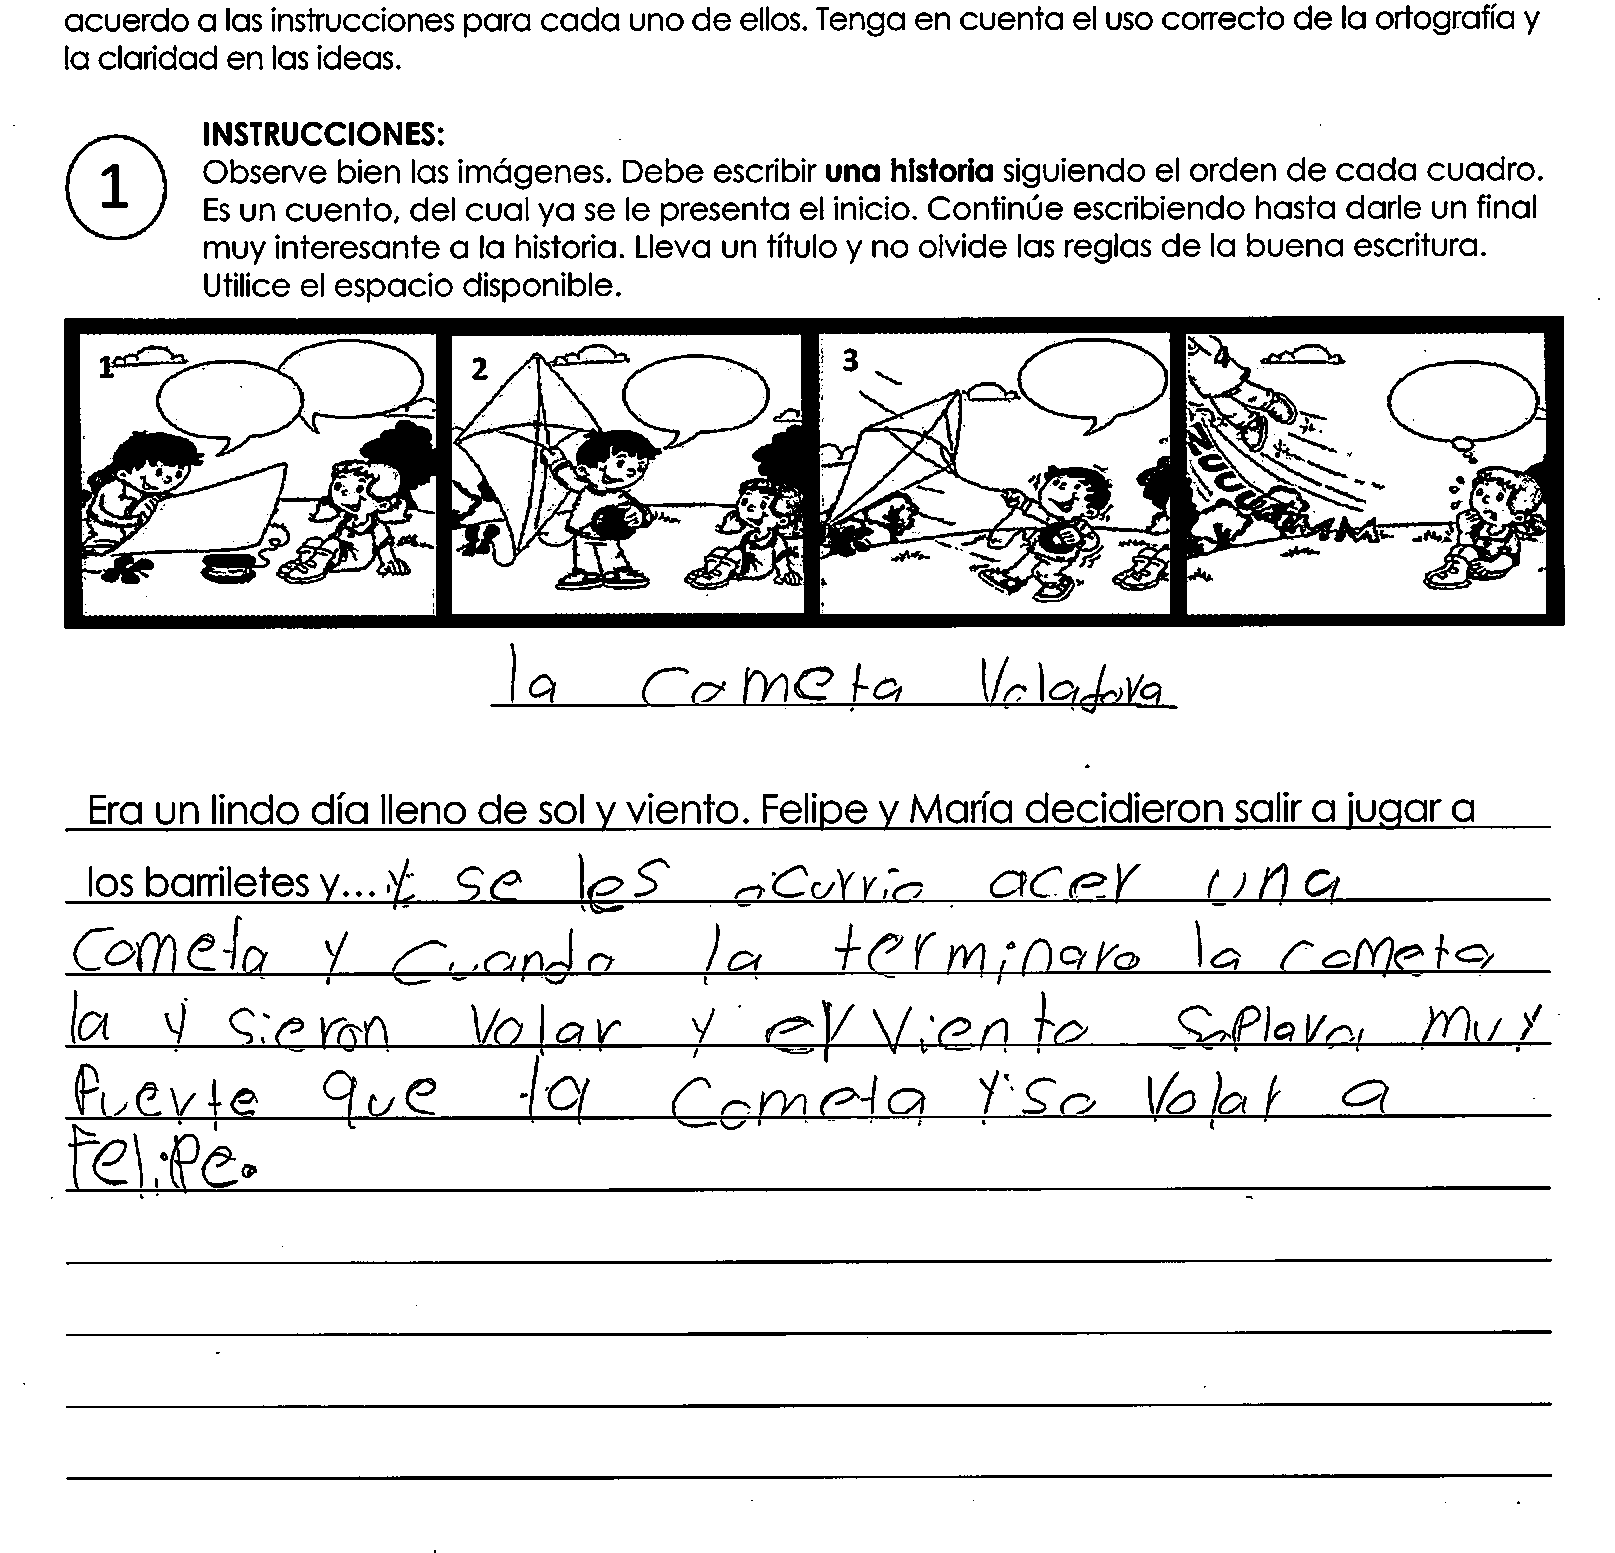 acuerdo a las instrucciones para cada uno de ellos. Tenga en cuenta el uso correcto de la ortografía y
la claridad en las ideas.
1
INSTRUCCIONES:
Observe bien las imágenes. Debe escribir una historia siguiendo el orden de cada cuadro.
Es un cuento, del cual ya se le presenta el inicio. Continúe escribiendo hasta darle un final
muy interesante a la historia. Lleva un título y no olvide las reglas de la buena escritura.
Utilice el espacio disponible.
1 2 3 4
ZUUUUMMM
la cometa Voladora
Era un lindo día lleno de sol y viento. Felipe y María decidieron salir a jugar a
los barriletes y... y se les ocurrio acer una
cometa y cuando la terminaro la cometa
la y sieron volar y el viento soplava muy
fuerte que la cometa yso volar a
Felipe.